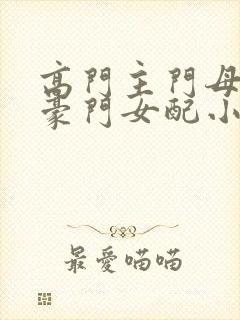 高門主門母
豪門女配小
最愛喵喵